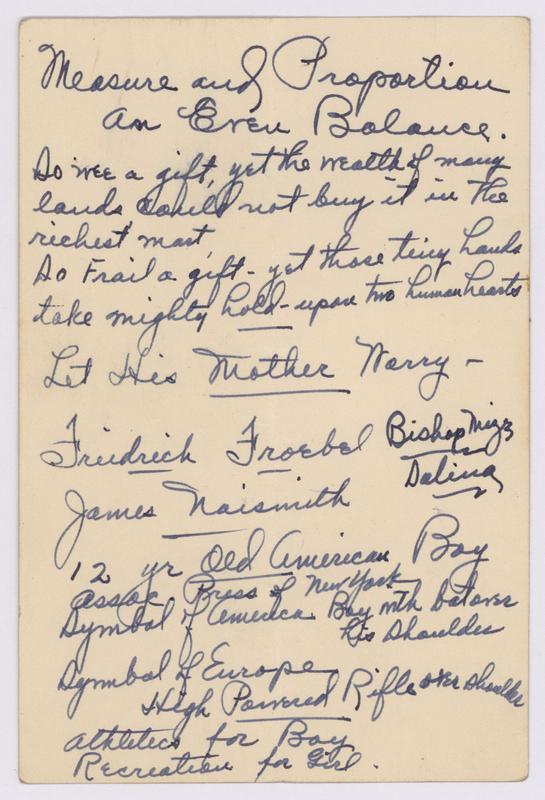 Measure and Proportion
An Even Balance.
So wee a gift, yet the wealth of many
lands could not buy it in the
richest mart
So Frail a gift - yet those tiny hands
take mighty hold - upon two human hearts
Let His Mother Worry -
Friedrich Froebel Bishop
James Naismith
12 yr Old American Boy
Assoc Press of New York
Symbol of America Boy with bat over
his shoulder
Symbol of Europe
High Powered Rifle over shoulder
Athletics for Boy
Recreation for Girl.